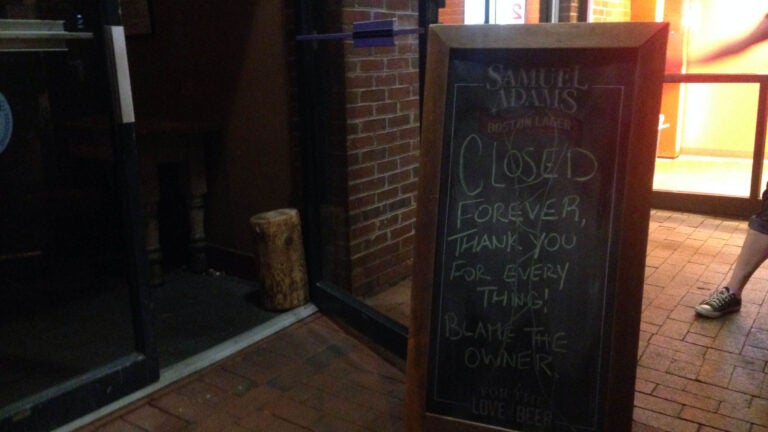 SAMUEL
ADAMS
BOSTON LAGER
CLOSED
FOREVER,
THANK YOU
FOR EVERY
THING!
BLAME THE
OWNER.
FOR THE
LOVE OF BEER